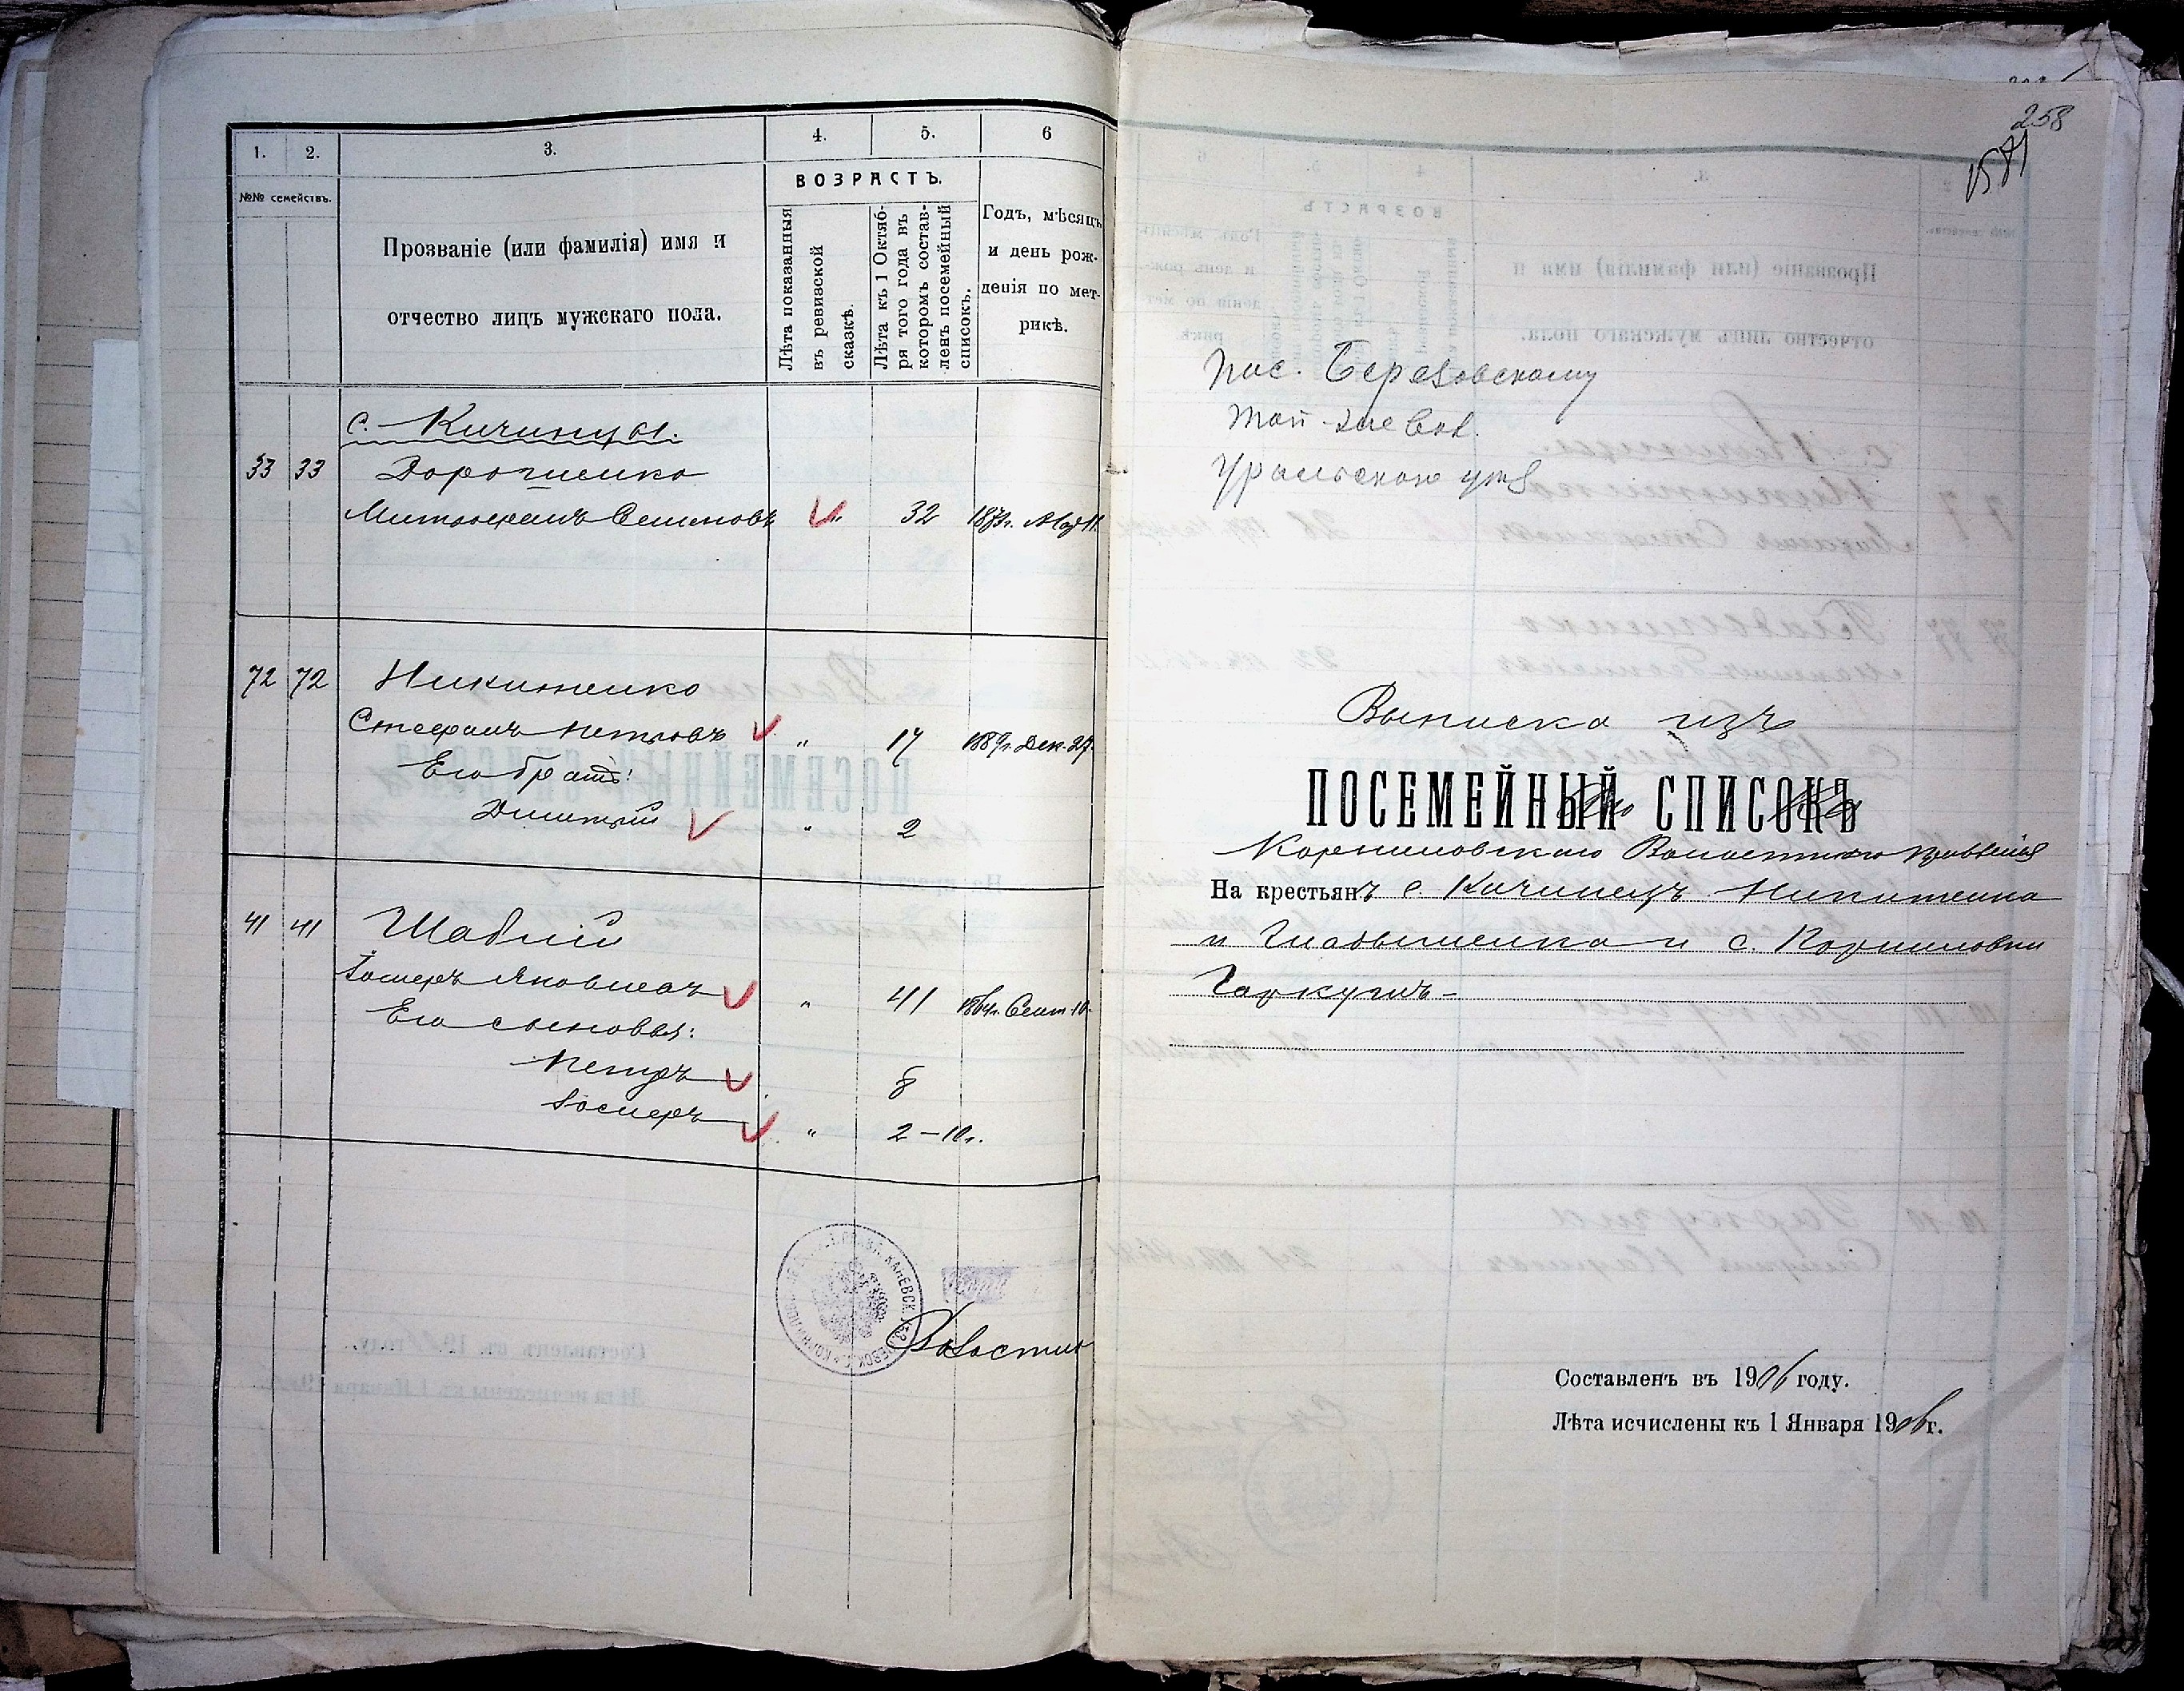 1. 2. 3. 4. 5. 6
№№ семействъ.
Прозваніе (или фамилія) имя и
отчество лицъ мужскаго пола.
ВОЗРАСТЪ.
Лѣта показанныя
въ ревизской
сказкѣ.
Лѣта къ 1 Октяб-
ря того года въ
которомъ состав-
ленъ посемейный
списокъ.
Годъ, мѣсяцъ
и день рож-
денія по мет-
рикѣ.
с. Кичинцы.
33 33 Дорошенко
Митрофанъ Семеновъ " 32 1873г.
72 72 Никитенко
Стефанъ Петровъ " 17 1889г. Дек. 27.
Его братъ:
Димитрій " 2
41 41 Шаблій
Іосифъ Яковлевъ " 41 1864г. Сент. 10.
Его сыновья:
Петръ 8
Іосифъ " 2 – 10
258
1581
пос. Березовскому
Уральскаго
Выписка изъ
ПОСЕМЕЙНЫЙ СПИСОКЪ
Корниловскаго Волостного Правленія
На крестьянъ с. Кичинецъ Никитенка
и Гладышенка и с. Корниловки
Гаркушъ –
Составленъ въ 1906 году.
Лѣта исчислены къ 1 Января 1906г.